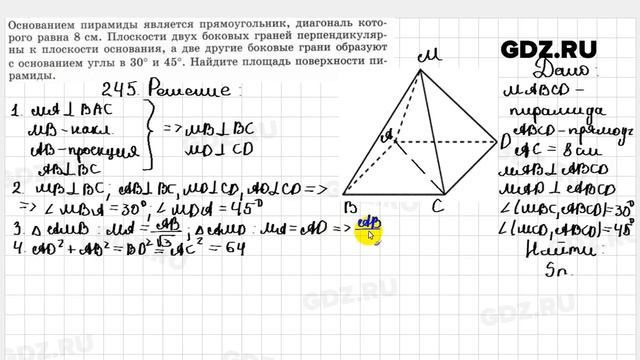 Основанием пирамиды является прямоугольник, диагональ кото-
рого равна 8 см. Плоскости двух боковых граней перпендикуляр-
ны к плоскости основания, а две другие боковые грани образуют
с основанием углы в 30° и 45°. Найдите площадь поверхности пи-
рамиды.
GDZ.RU
245. Решение:
1. MA⊥BAC
MB - накл.
AB - проекция
AB⊥BC
=> MB⊥BC
MD⊥CD
2. MB⊥BC; AB⊥BC, MD⊥CD, AD⊥CD =>
=> ∠MBA = 30°, ∠MDA = 45°
3. △AMB: MA = AB/√3; △AMD: MA = AD => AB
4. AD² + AB² = BD² = AC² = 64
M
A
D
B
C
Дано:
MABCD -
пирамида
ABCD - прямоуг
AC = 8 см
MAB⊥ABCD
MAD⊥ABCD
∠(MBC, ABCD) = 30°
∠(MCD, ABCD) = 45°
Найти:
Sп.